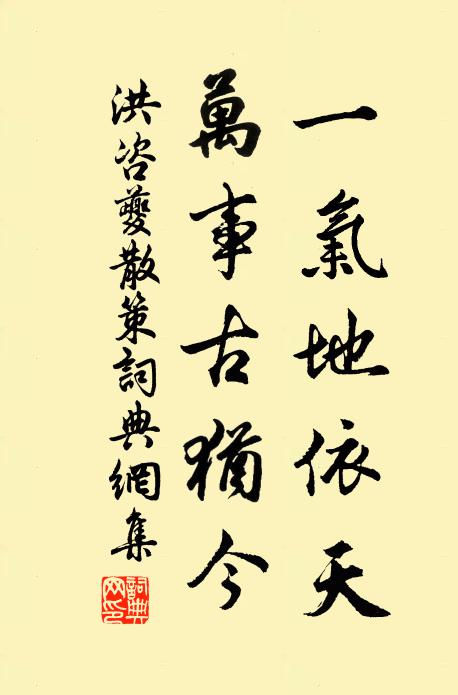 一氣地依天
萬事古猶今
洪咨夔散策詞典網集
詞典網印